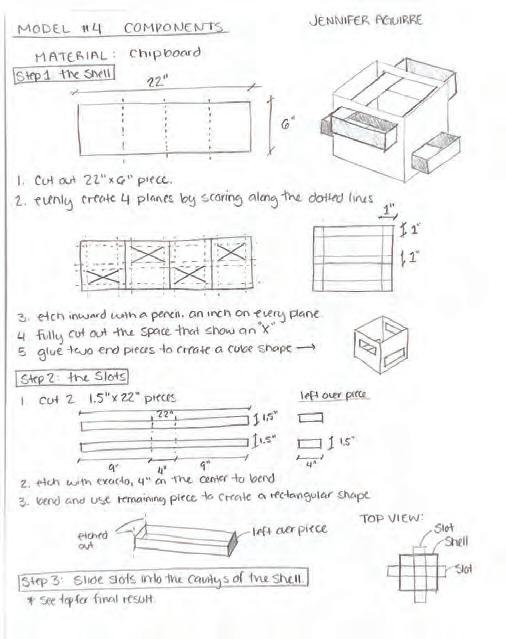 MODEL #4 COMPONENTS
JENNIFER AGUIRRE
MATERIAL: Chipboard
Step 1 the Shell
22"
6"
1. Cut out 22"x6" piece.
2. evenly create 4 planes by scoring along the dotted lines
1"
1"
1"
3. etch inward with a pencil, an inch on every plane
4 fully cut out the space that show an "X"
5 glue two end pieces to create a cube shape →
Step 2: the Slots
1 cut 2 1.5"x22" pieces
left over piece
22"
1.5"
1.5"
1.5"
9" 4" 9"
4"
2. etch with exacto, 4" on the center to bend
3. bend and use remaining piece to create a rectangular shape
etched out
left over piece
TOP VIEW:
Slot
Shell
Slot
Step 3: Slide slots into the cavitys of the shell.
* see top for final result.